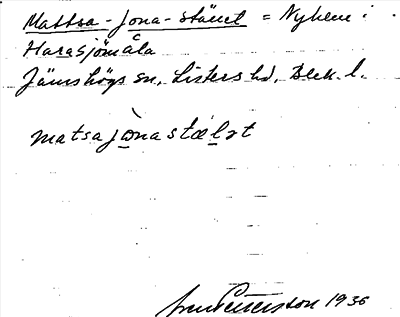 Mattsa-Jona-stället = Nyhem i
Harasjömåla
Jämshögs sn, Listers hd, Blek. l.
matsajònastælət
1936